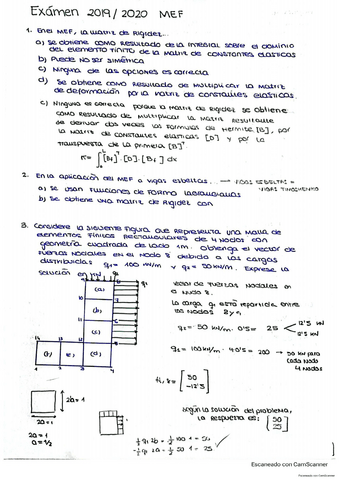 Exámen 2019/2020 MEF
1. En el MEF, la matriz de rigidez...
a) Se obtiene como resultado de la integral sobre el dominio
del elemento finito de la matriz de constantes elásticas
b) Puede no ser simétrica
c) Ninguna de las opciones es correcta
d) Se obtiene como resultado de multiplicar la matriz
de deformación por la matriz de constantes elásticas.
c) Ninguna es correcta porque la matriz de rigidez se obtiene
como resultado de multiplicar la matriz resultante
de derivar dos veces las formulas de Hermite [B], por
la matriz de constantes elásticas [D] y por la
transpuesta de la primera [B]ᵀ
2. En la aplicación del MEF a vigas esbeltas...
a) Se usan funciones de forma lagrangianas
b) Se obtiene una matriz de rigidez con
3. Considere la siguiente figura que representa una malla de
elementos finitos rectangulares de 4 nodos con
geometría cuadrada de lado 1m. Obtenga el vector de
fuerzas nodales en el nodo 8 debido a las cargas
distribuidas: q₁= 100 kN/m y q₂= 50 kN/m. Exprese la
solución en kN
Vector de fuerzas nodales en
el nudo 8.
La carga q₁ está repartida entre
los nodos 2 y 9
(a)
(b)
(c)
(d)
q₂= 50 kN/m · 0'5 = 25
q₁ = 100 kN/m ·
50 kN para
cada nodo
4 nodos
[50
-12'5]
2a = 1
2a = 1
a = 1/2
Según la solución del problema,
la respuesta es: [50
25]
Escaneado con CamScanner